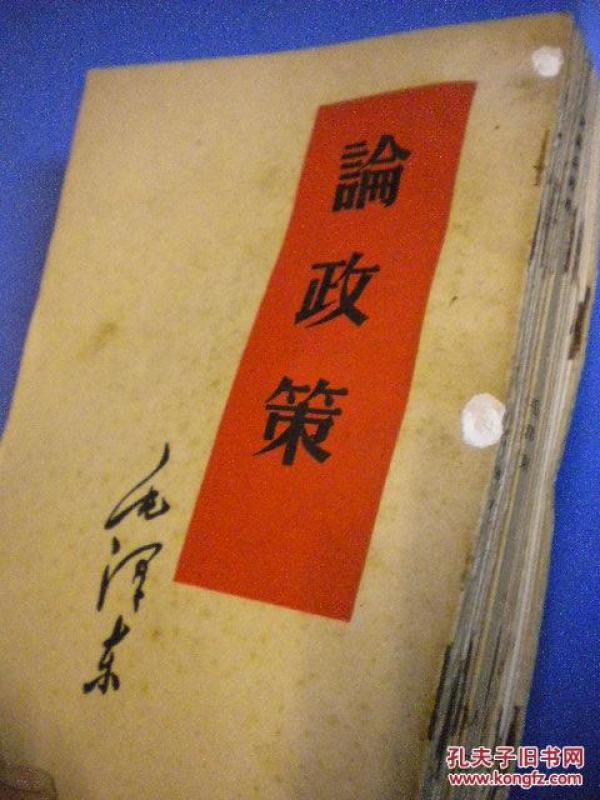 論政策
毛泽东
孔夫子旧书网
www.kongfz.com